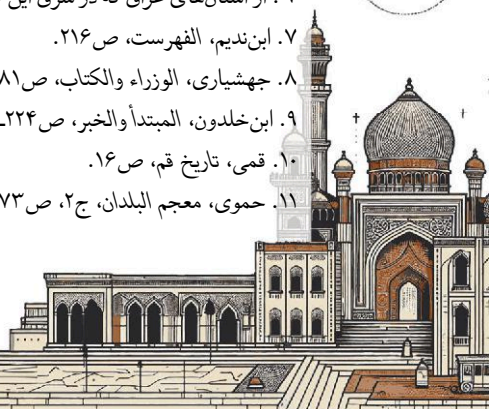 از استان‌های عراق که در شرق این
۷. ابن‌ندیم، الفهرست، ص۲۱۶.
۸. جهشیاری، الوزراء والکتاب، ص۸۱
۹. ابن‌خلدون، المبتدأ والخبر، ص۲۲۴ـ
۱۰. قمی، تاریخ قم، ص۱۶.
۱۱. حموی، معجم البلدان، ج۲، ص۷۳